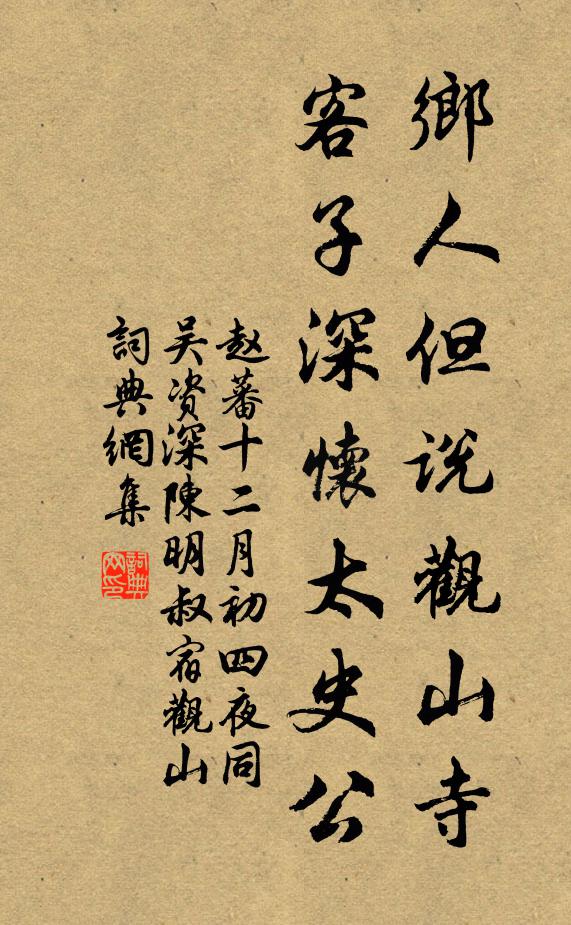 鄉人但説觀山寺
客子深懷太史公
赵蕃十二月初四夜同
吴资深陳明叔宿觀山
詞典網集
詞典網印